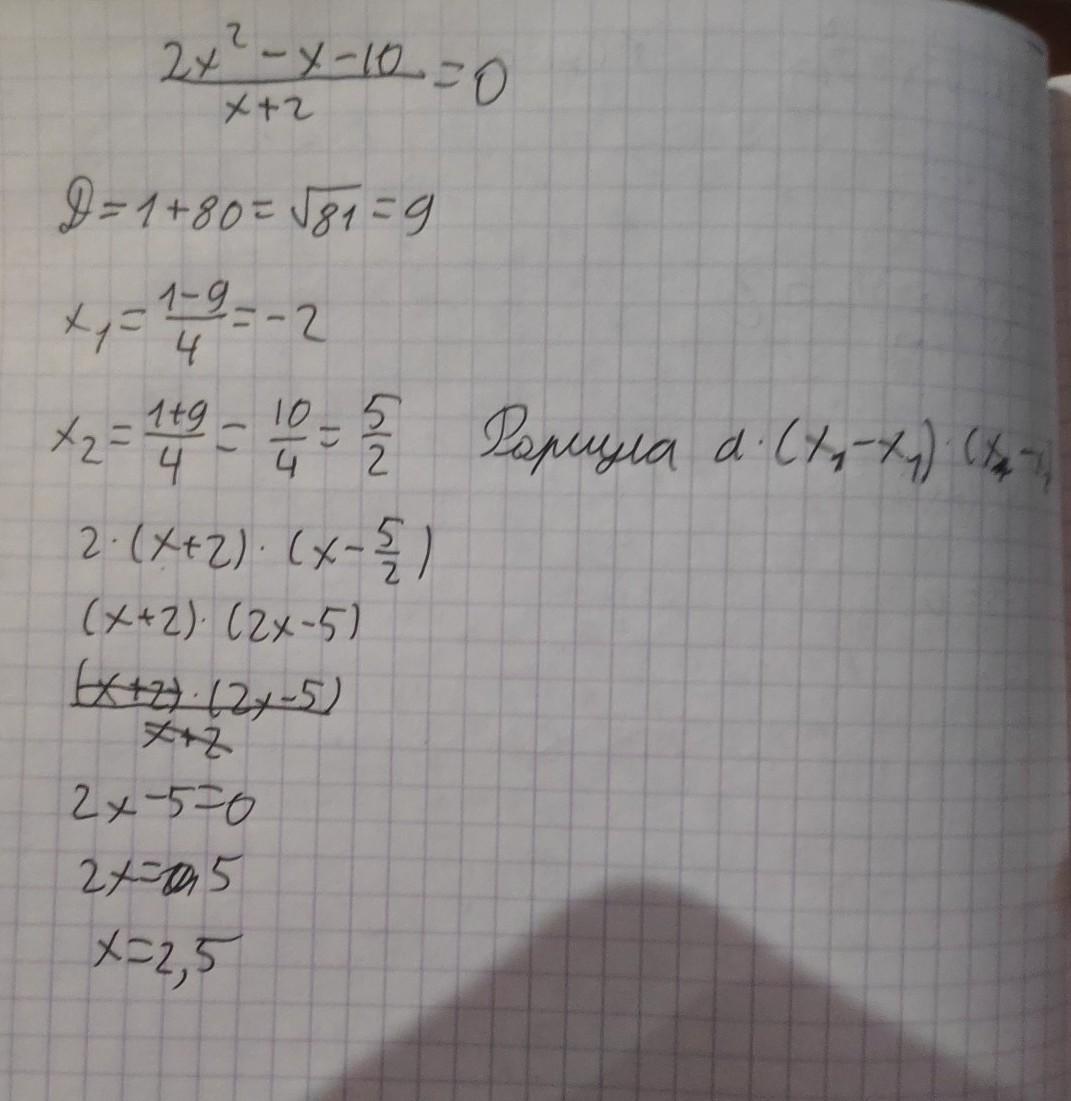 2x² - x - 10
x + 2 = 0
D = 1 + 80 = √81 = 9
x₁ = (1-9)/4 = -2
x₂ = (1+9)/4 = 10/4 = 5/2 Формула d · (x₁ - x₁) ·
2 · (x+2) · (x - 5/2)
(x+2) · (2x-5)
(x+2) · (2x-5)
x+2
2x - 5 = 0
2x = 5
x = 2,5